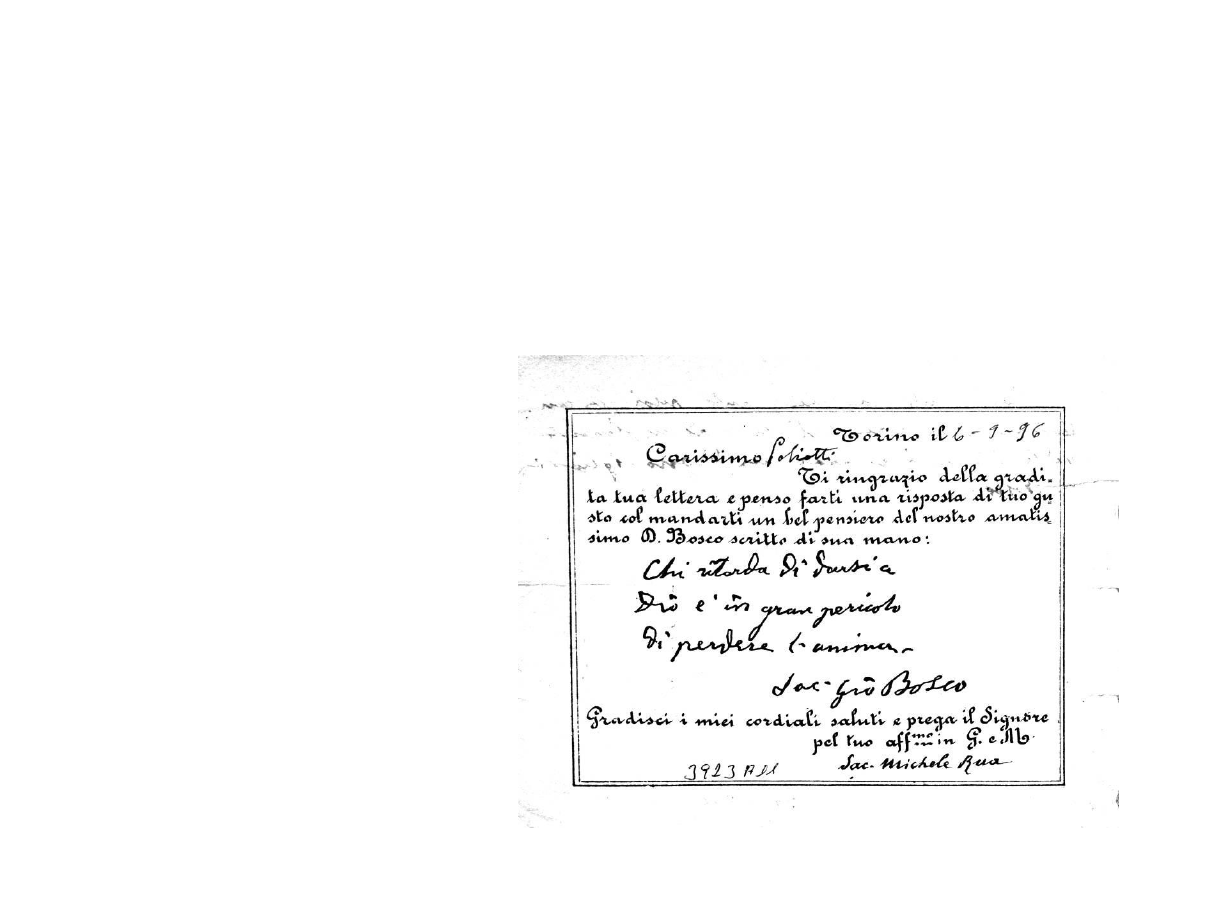 Torino il 6-9-96
Carissimo
Ti ringrazio della gradi-
ta tua lettera e penso farti una risposta di tuo gu
sto col mandarti un bel pensiero del nostro amatis
simo D. Bosco scritto di sua mano:
Chi ritarda di darsi a
Dio e' in gran pericolo
di perdere l'anima.
Sac. Gio Bosco
Gradisci i miei cordiali saluti e prega il Signore
pel tuo aff.mo in G. e M.
Sac. Michele Rua